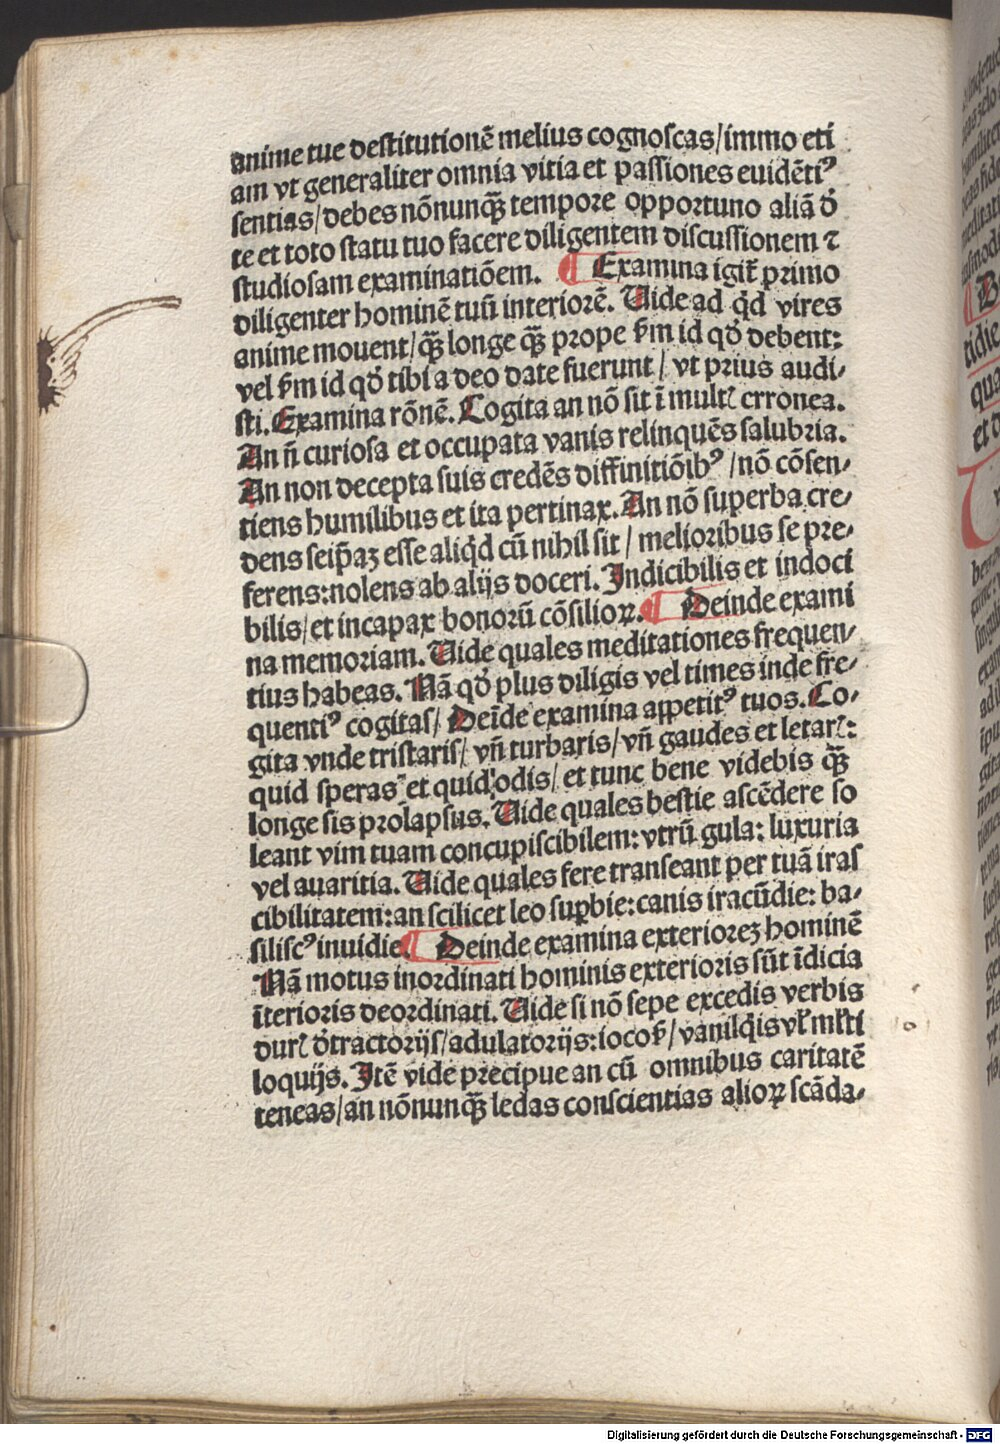 anime tue destitutionē melius cognoscas/immo eti
am vt generaliter omnia vitia et passiones euidētiꝰ
sentias/debes nōnunqꝫ tempore opportuno aliā ð
te et toto statu tuo facere diligentem discussionem ⁊
studiosam examinatiōem. ¶ Examina igit᷑ primo
diligenter hominē tuū interiorē. Uide ad qd vires
anime mouent/qꝫ longe qꝫ prope ẜm id qð debent:
vel ẜm id qð tibi a deo date fuerunt/ vt prius audi-
sti. Examina rōnē. Cogita an nō sit ī multꝭ erronea.
An ñ curiosa et occupata vanis relinquēs salubria.
An non decepta suis credēs diffinitiōibꝰ /nō cōsen-
tiens humilibus et ita pertinax. An nō superba cre-
dens seip̄aꝫ esse aliqd cū nihil sit / melioribus se pre-
ferens:nolens ab alijs doceri. Indicibilis et indoci
bilis/et incapax bonorū cōsilioꝝ. ¶ Deinde exami
na memoriam. Uide quales meditationes frequen-
tius habeas. Nā qð plus diligis vel times inde fre-
quentiꝰ cogitas/ Deīde examina appetitꝰ tuos. Co-
gita vnde tristaris/ vñ turbaris/vñ gaudes et letarꝭ:
quid speras et quid odis/ et tunc bene videbis qꝫ
longe sis prolapsus. Uide quales bestie ascēdere so
leant vim tuam concupiscibilem: vtrū gula: luxuria
vel auaritia. Uide quales fere transeant per tuā iras
cibilitatem:an scilicet leo suꝑbie:canis iracūdie: ba-
siliscꝰ inuidie. ¶ Deinde examina exterioreꝫ hominē
Nā motus inordinati hominis exterioris sūt īdicia
īterioris deordinati. Uide si nō sepe excedis verbis
durꝭ ðtractorijs/adulatorijs:iocoẜ/ vanilqis vl̄ ml̄ti
loquijs. Itē vide precipue an cū omnibus caritatē
teneas/an nōnunqꝫ ledas conscientias alioꝝ scāda-
Digitalisierung gefördert durch die Deutsche Forschungsgemeinschaft - DFG